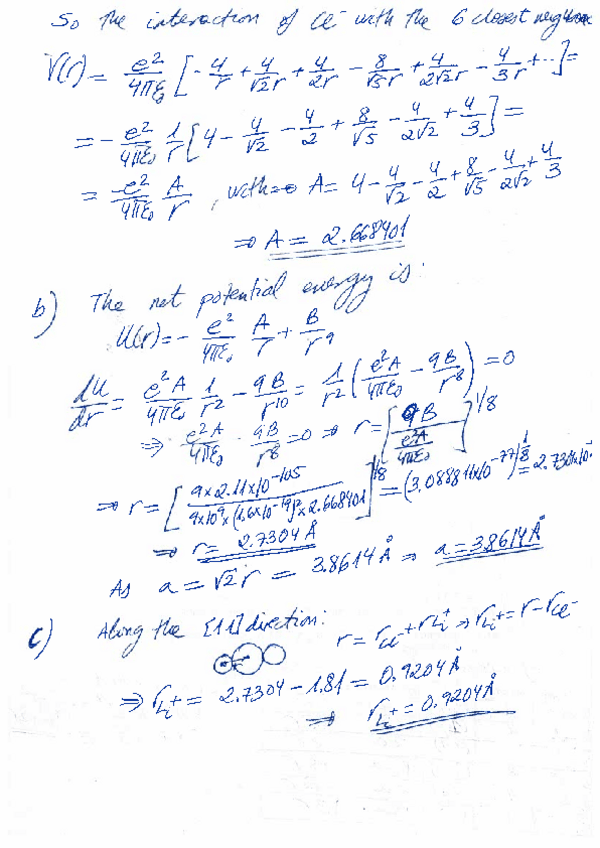 So the interaction of Cl⁻ with the 6 closest neighbors
V(r) = e²/4πε₀ [ - 4/r + 4/√2r + 4/2r - 8/√5r + 4/2√2r - 4/3r + ... ] =
= - e²/4πε₀ 1/r [ 4 - 4/√2 - 4/2 + 8/√5 - 4/2√2 + 4/3 ] =
= -e²/4πε₀ A/r , with A = 4 - 4/√2 - 4/2 + 8/√5 - 4/2√2 + 4/3
⇒ A = 2.668401
b) The net potential energy is:
U(r) = - e²/4πε₀ A/r + B/r⁹
dU/dr = e²A/4πε₀ 1/r² - 9B/r¹⁰ = 1/r² ( e²A/4πε₀ - 9B/r⁸ ) = 0
⇒ e²A/4πε₀ - 9B/r⁸ = 0 ⇒ r = [ 9B / e²A/4πε₀ ]^1/8
⇒ r = [ 9×2.11×10⁻¹⁰⁵ / 9×10⁹×(1.6×10⁻¹⁹)²×2.668401 ]^1/8 = (3.088811×10⁻⁷⁷)^1/8 = 2.7304×10⁻
⇒ r = 2.7304 Å
As a = √2 r = 3.8614 Å ⇒ a = 3.8614 Å
c) Along the [11] direction: r = r_Cl⁻ + r_Li⁺ ⇒ r_Li⁺ = r - r_Cl⁻
⇒ r_Li⁺ = 2.7304 - 1.81 = 0.9204 Å
⇒ r_Li⁺ = 0.9204 Å